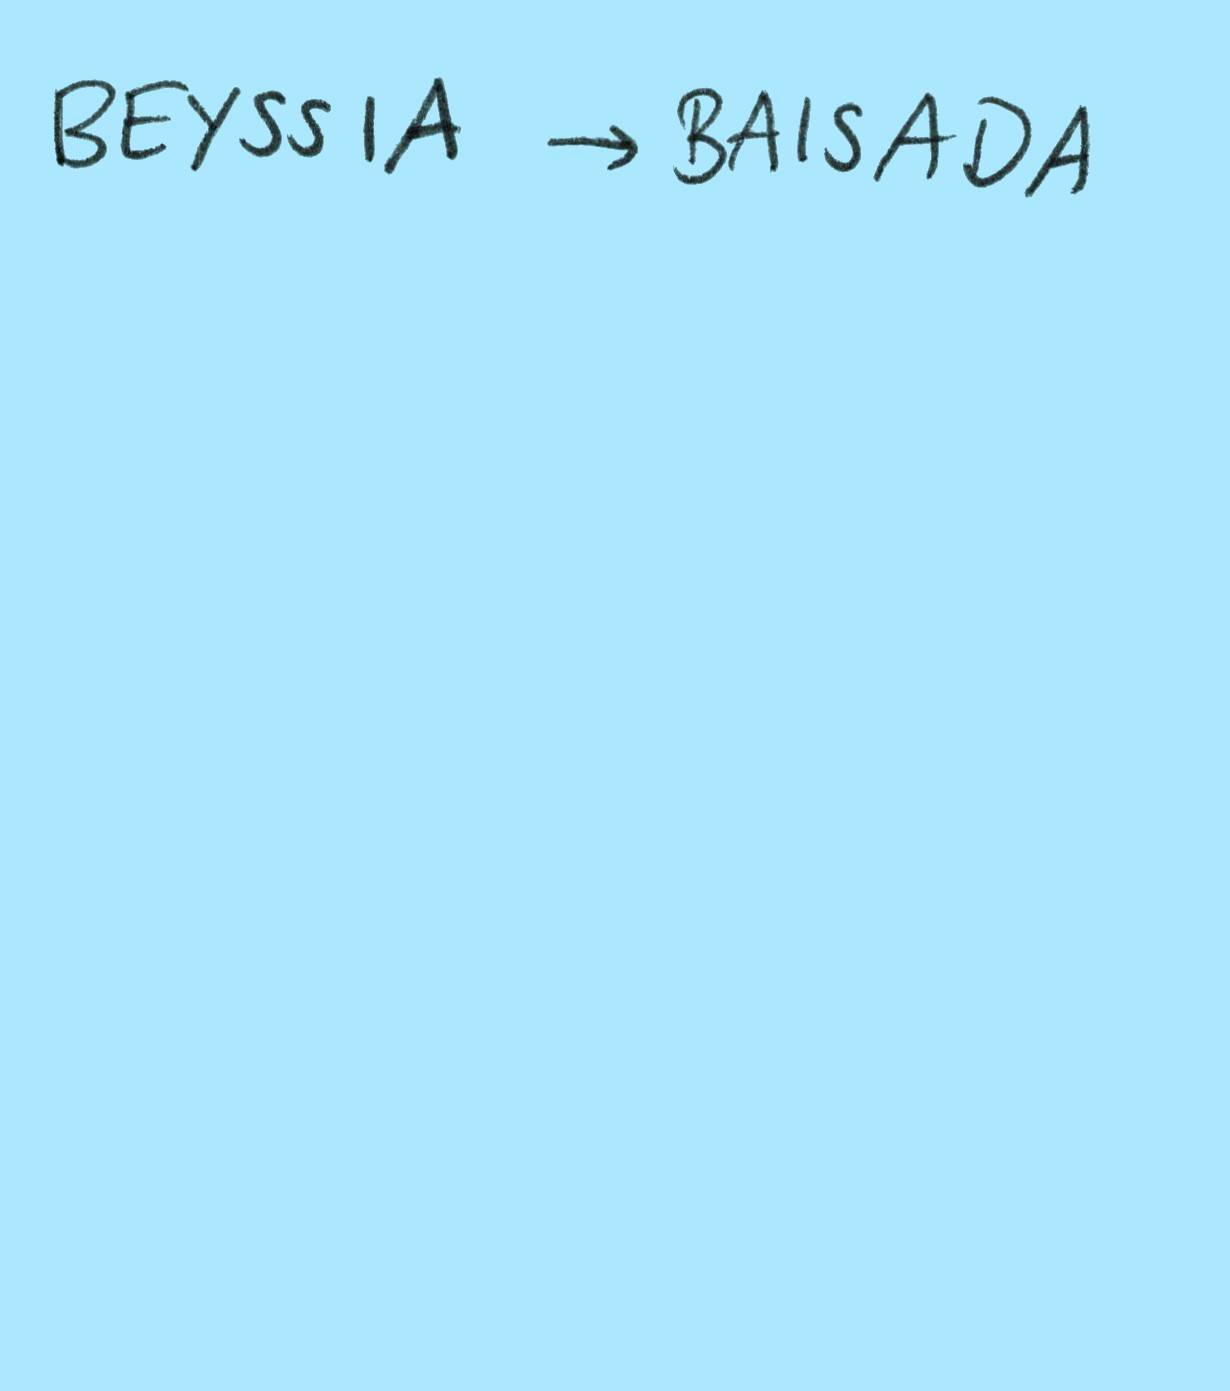 BEYSSIA → BAISADA